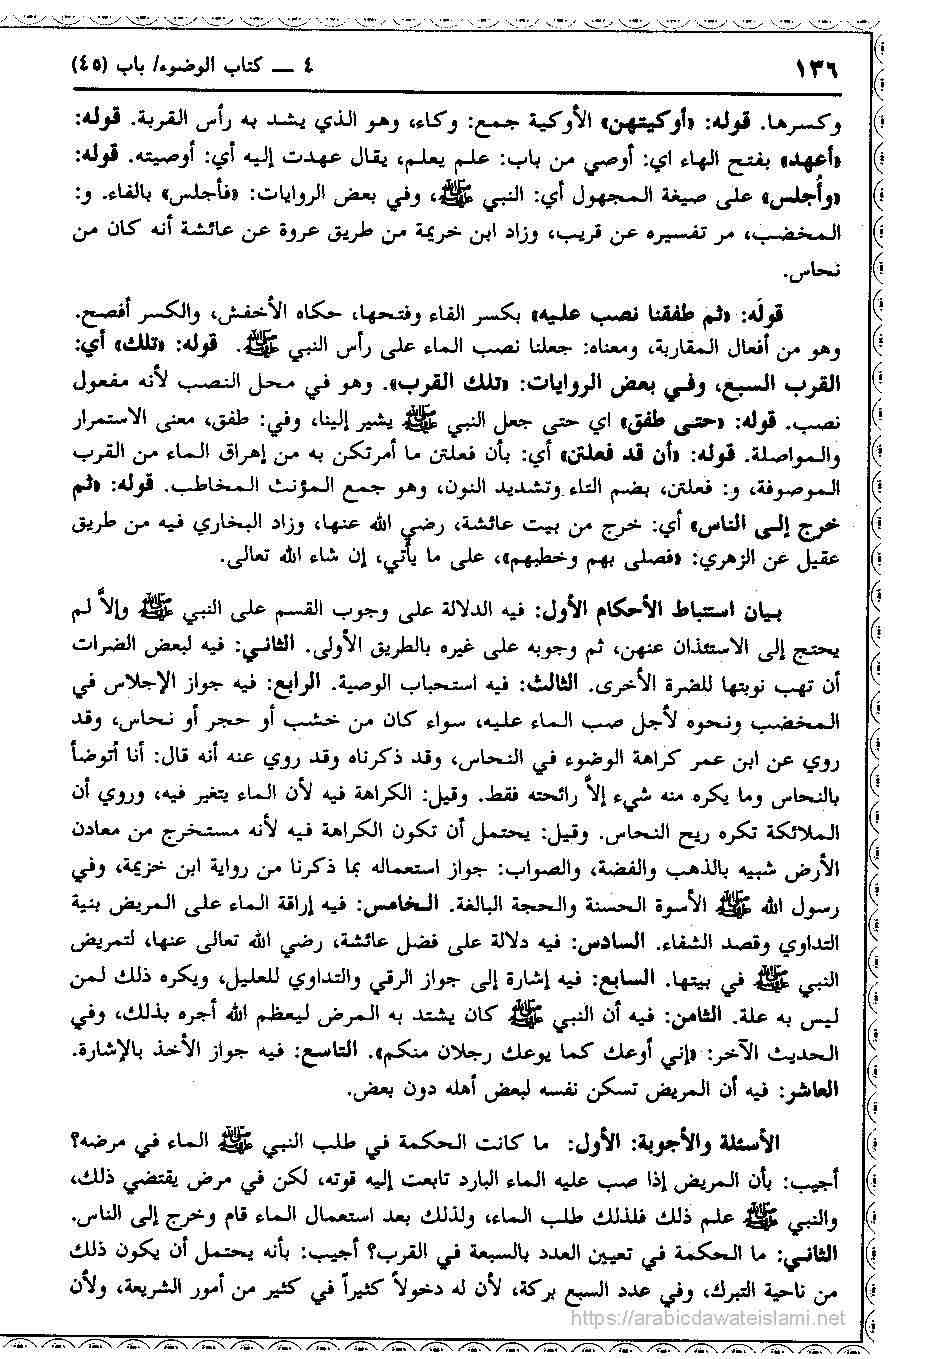 ١٣٦
٤ ـــ كتاب الوضوء/ باب (٤٥)
وكسرها. قوله: «أوكيتهن» الأوكية جمع: وكاء، وهو الذي يشد به رأس القربة. قوله:
«أعهد» بفتح الهاء اي: أوصي من باب: علم يعلم، يقال عهدت إليه أي: أوصيته. قوله:
«وأُجلس» على صيغة المجهول أي: النبي ﷺ، وفي بعض الروايات: «فأجلس» بالفاء. و:
المخضب، مر تفسيره عن قريب، وزاد ابن خريمة من طريق عروة عن عائشة أنه كان من
نحاس.
قوله: «ثم طفقنا نصب عليه» بكسر الفاء وفتحها، حكاه الأخفش، والكسر أفصح.
وهو من أفعال المقاربة، ومعناه: جعلنا نصب الماء على رأس النبي ﷺ. قوله: «تلك» أي:
القرب السبع، وفي بعض الروايات: «تلك القرب». وهو في محل النصب لأنه مفعول
نصب. قوله: «حتى طفق» اي حتى جعل النبي ﷺ يشير إلينا، وفي: طفق، معنى الاستمرار
والمواصلة. قوله: «أن قد فعلتن» أي: بأن فعلتن ما أمرتكن به من إهراق الماء من القرب
الموصوفة، و: فعلتن، بضم التاء وتشديد النون، وهو جمع المؤنث المخاطب. قوله: «ثم
خرج إلى الناس» أي: خرج من بيت عائشة، رضي الله عنها، وزاد البخاري فيه من طريق
عقيل عن الزهري: «فصلى بهم وخطبهم»، على ما يأتي، إن شاء الله تعالى.
بيان استنباط الأحكام الأول: فيه الدلالة على وجوب القسم على النبي ﷺ وإلاَّ لم
يحتج إلى الاستئذان عنهن، ثم وجوبه على غيره بالطريق الأولى. الثاني: فيه لبعض الضرات
أن تهب نوبتها للضرة الأخرى. الثالث: فيه استحباب الوصية. الرابع: فيه جواز الإجلاس في
المخضب ونحوه لأجل صب الماء عليه، سواء كان من خشب أو حجر أو نحاس، وقد
روي عن ابن عمر كراهة الوضوء في النحاس، وقد ذكرناه وقد روي عنه أنه قال: أنا أتوضأ
بالنحاس وما يكره منه شيء إلاَّ رائحته فقط. وقيل: الكراهة فيه لأن الماء يتغير فيه، وروي أن
الملائكة تكره ريح النحاس. وقيل: يحتمل أن تكون الكراهة فيه لأنه مستخرج من معادن
الأرض شبيه بالذهب والفضة، والصواب: جواز استعماله بما ذكرنا من رواية ابن خزيمة، وفي
رسول الله ﷺ الأسوة الحسنة والحجة البالغة. الخامس: فيه إراقة الماء على المريض بنية
التداوي وقصد الشفاء. السادس: فيه دلالة على فضل عائشة، رضي الله تعالى عنها، لتمريض
النبي ﷺ في بيتها. السابع: فيه إشارة إلى جواز الرقي والتداوي للعليل، ويكره ذلك لمن
ليس به علة. الثامن: فيه أن النبي ﷺ كان يشتد به المرض ليعظم الله أجره بذلك، وفي
الحديث الآخر: «إني أوعك كما يوعك رجلان منكم». التاسع: فيه جواز الأخذ بالإشارة.
العاشر: فيه أن المريض تسكن نفسه لبعض أهله دون بعض.
الأسئلة والأجوبة: الأول: ما كانت الحكمة في طلب النبي ﷺ الماء في مرضه؟
أجيب: بأن المريض إذا صب عليه الماء البارد تابعت إليه قوته، لكن في مرض يقتضي ذلك،
والنبي ﷺ علم ذلك فلذلك طلب الماء، ولذلك بعد استعمال الماء قام وخرج إلى الناس.
الثاني: ما الحكمة في تعيين العدد بالسبعة في القرب؟ أجيب: بأنه يحتمل أن يكون ذلك
من ناحية التبرك، وفي عدد السبع بركة، لأن له دخولاً كثيراً في كثير من أمور الشريعة، ولأن
https://arabicdawateislami.net